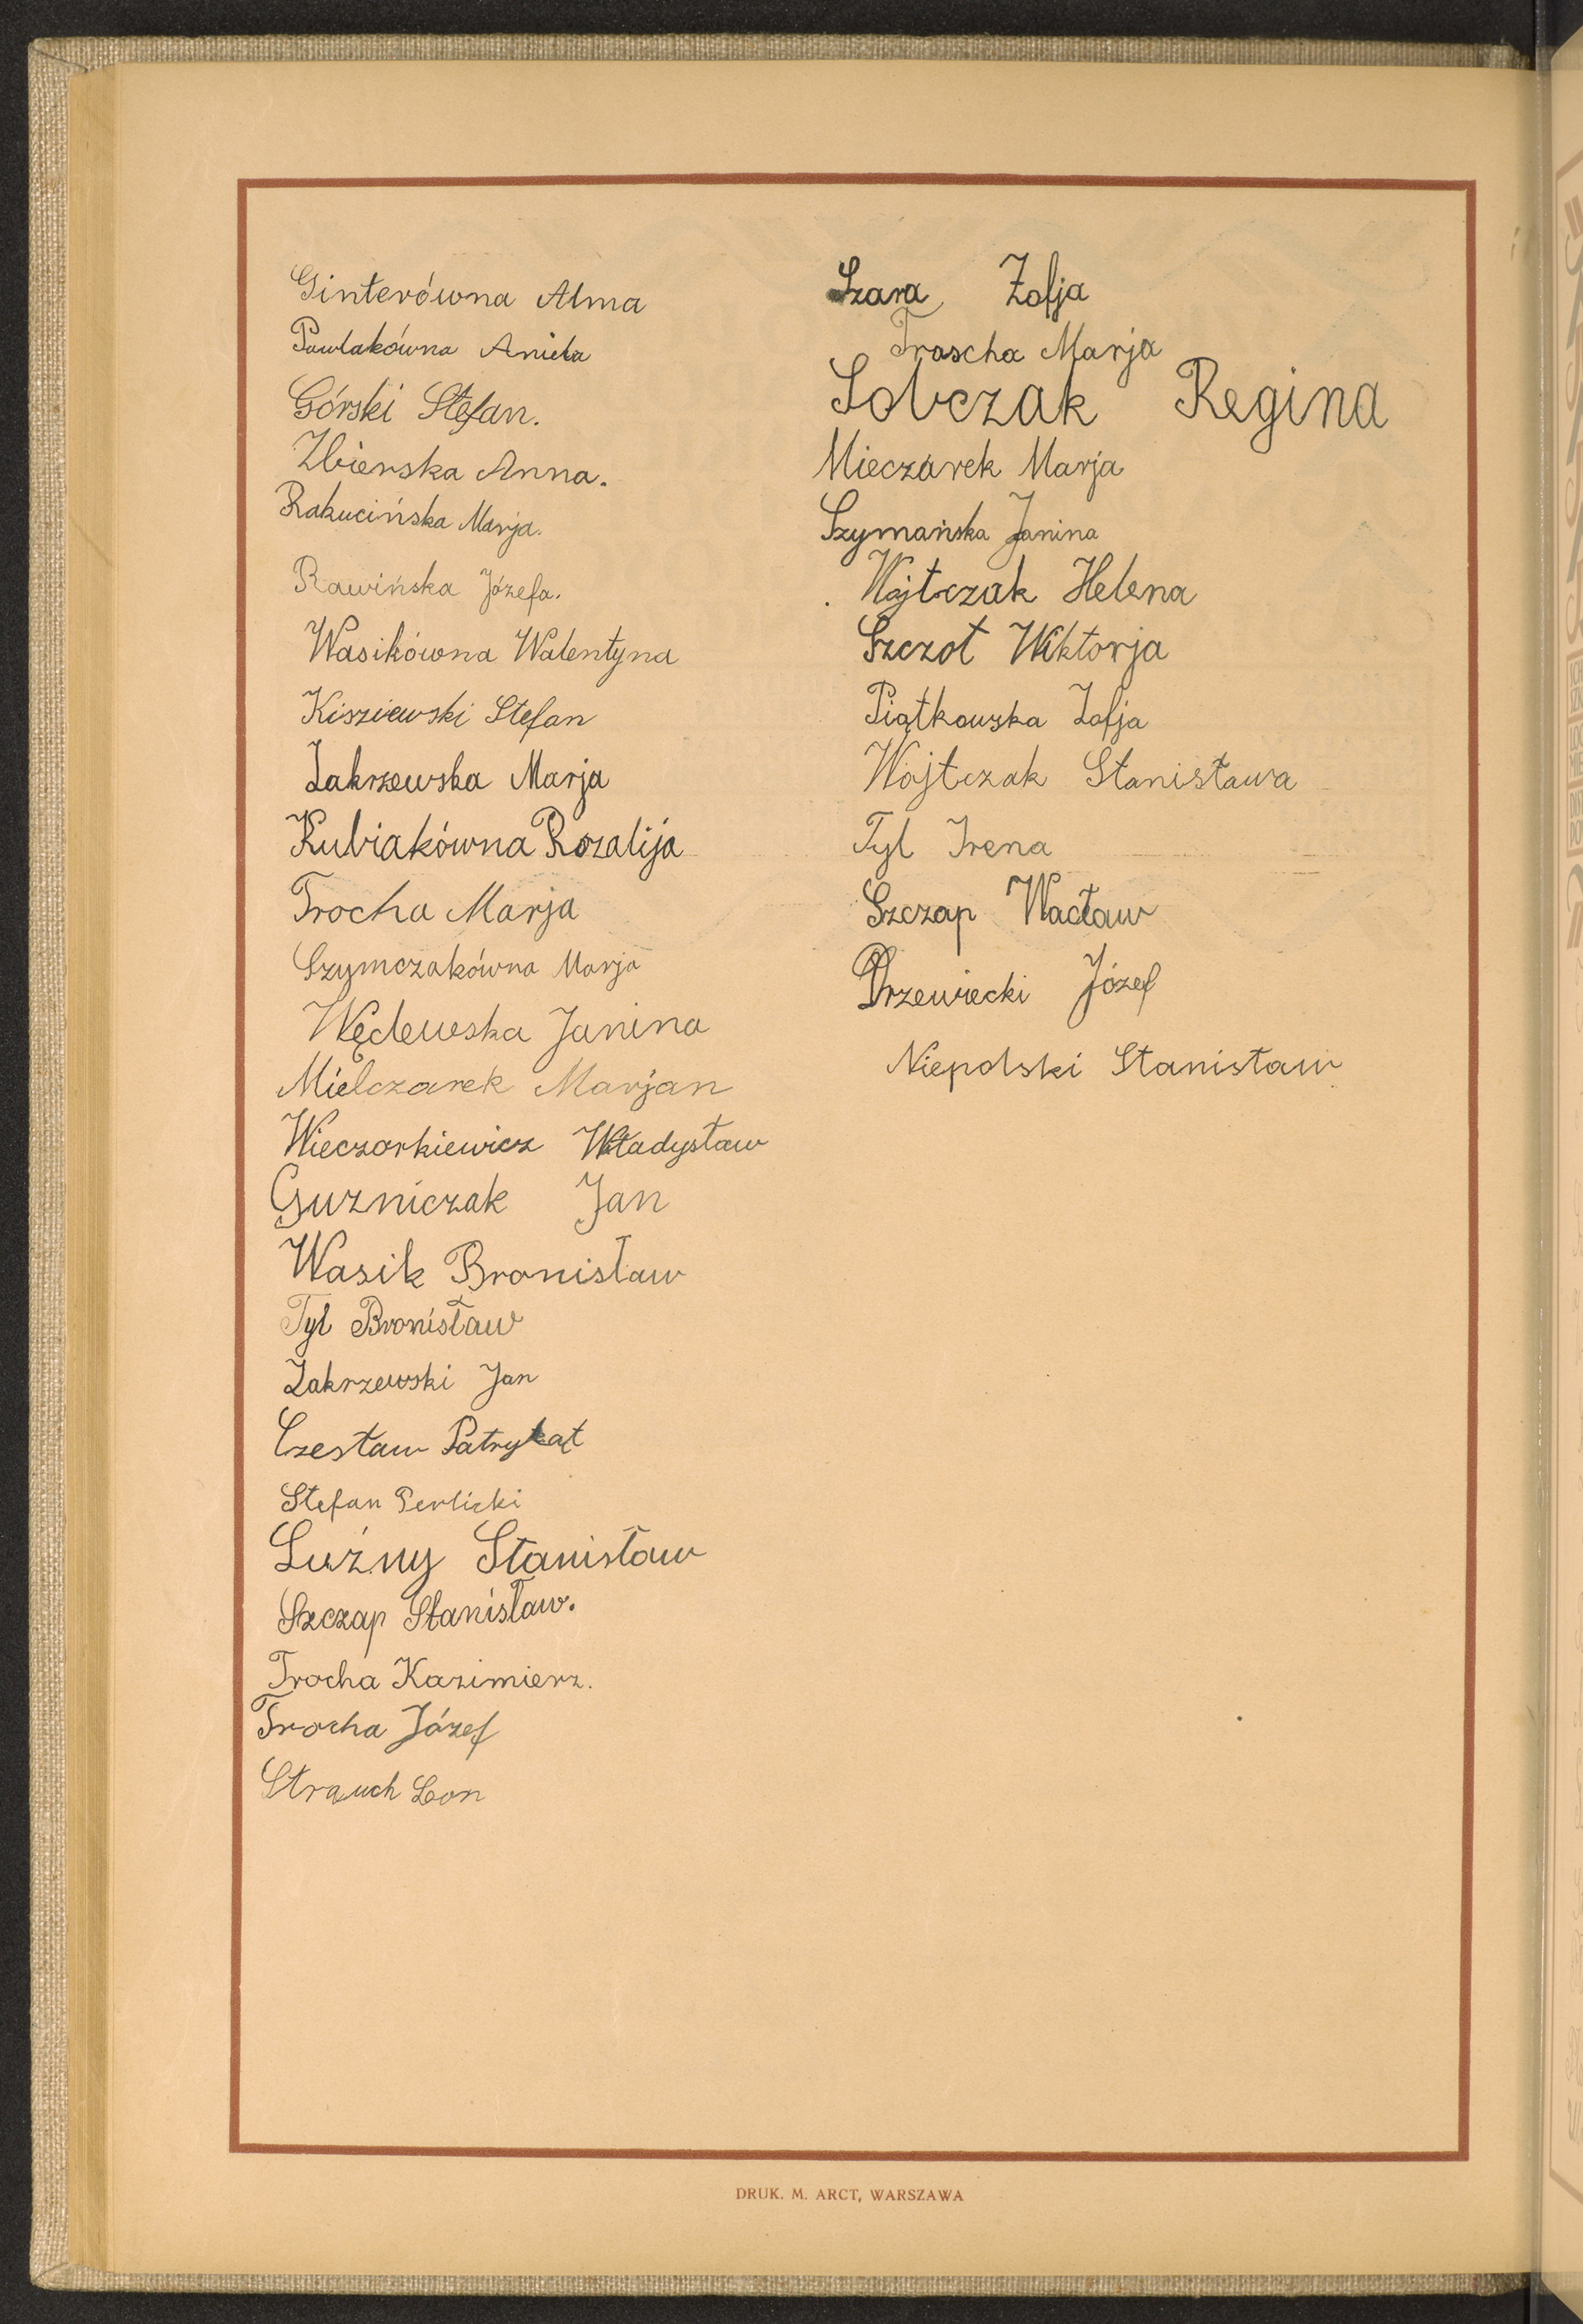 Ginterówna Alma
Pawlakówna Aniela
Górski Stefan.
Zbierska Anna.
Rakucińska Marja.
Rawińska Józefa.
Wasikówna Walentyna
Kisziewski Stefan
Zakrzewska Marja
Kubiakówna Rozalija
Trocha Marja
Szymczakówna Marja
Wędewska Janina
Mielczarek Marjan
Wieczorkiewicz Władysław
Guzniczak Jan
Wasik Bronisław
Tyl Bronisław
Zakrzewski Jan
Czesław Patrykąt
Stefan Perlicki
Luźny Stanisław
Szczap Stanisław.
Trocha Kazimierz.
Trocha Józef
Strauch Leon
Szara Zofja
Troscha Marja
Sobczak Regina
Mieczarek Marja
Szymańska Janina
Wojtczak Helena
Szczot Wiktorja
Piątkowska Zofja
Wojtczak Stanisława
Tyl Irena
Szczap Wacław
Drzewiecki Józef
Niepolski Stanisław
DRUK. M. ARCT, WARSZAWA